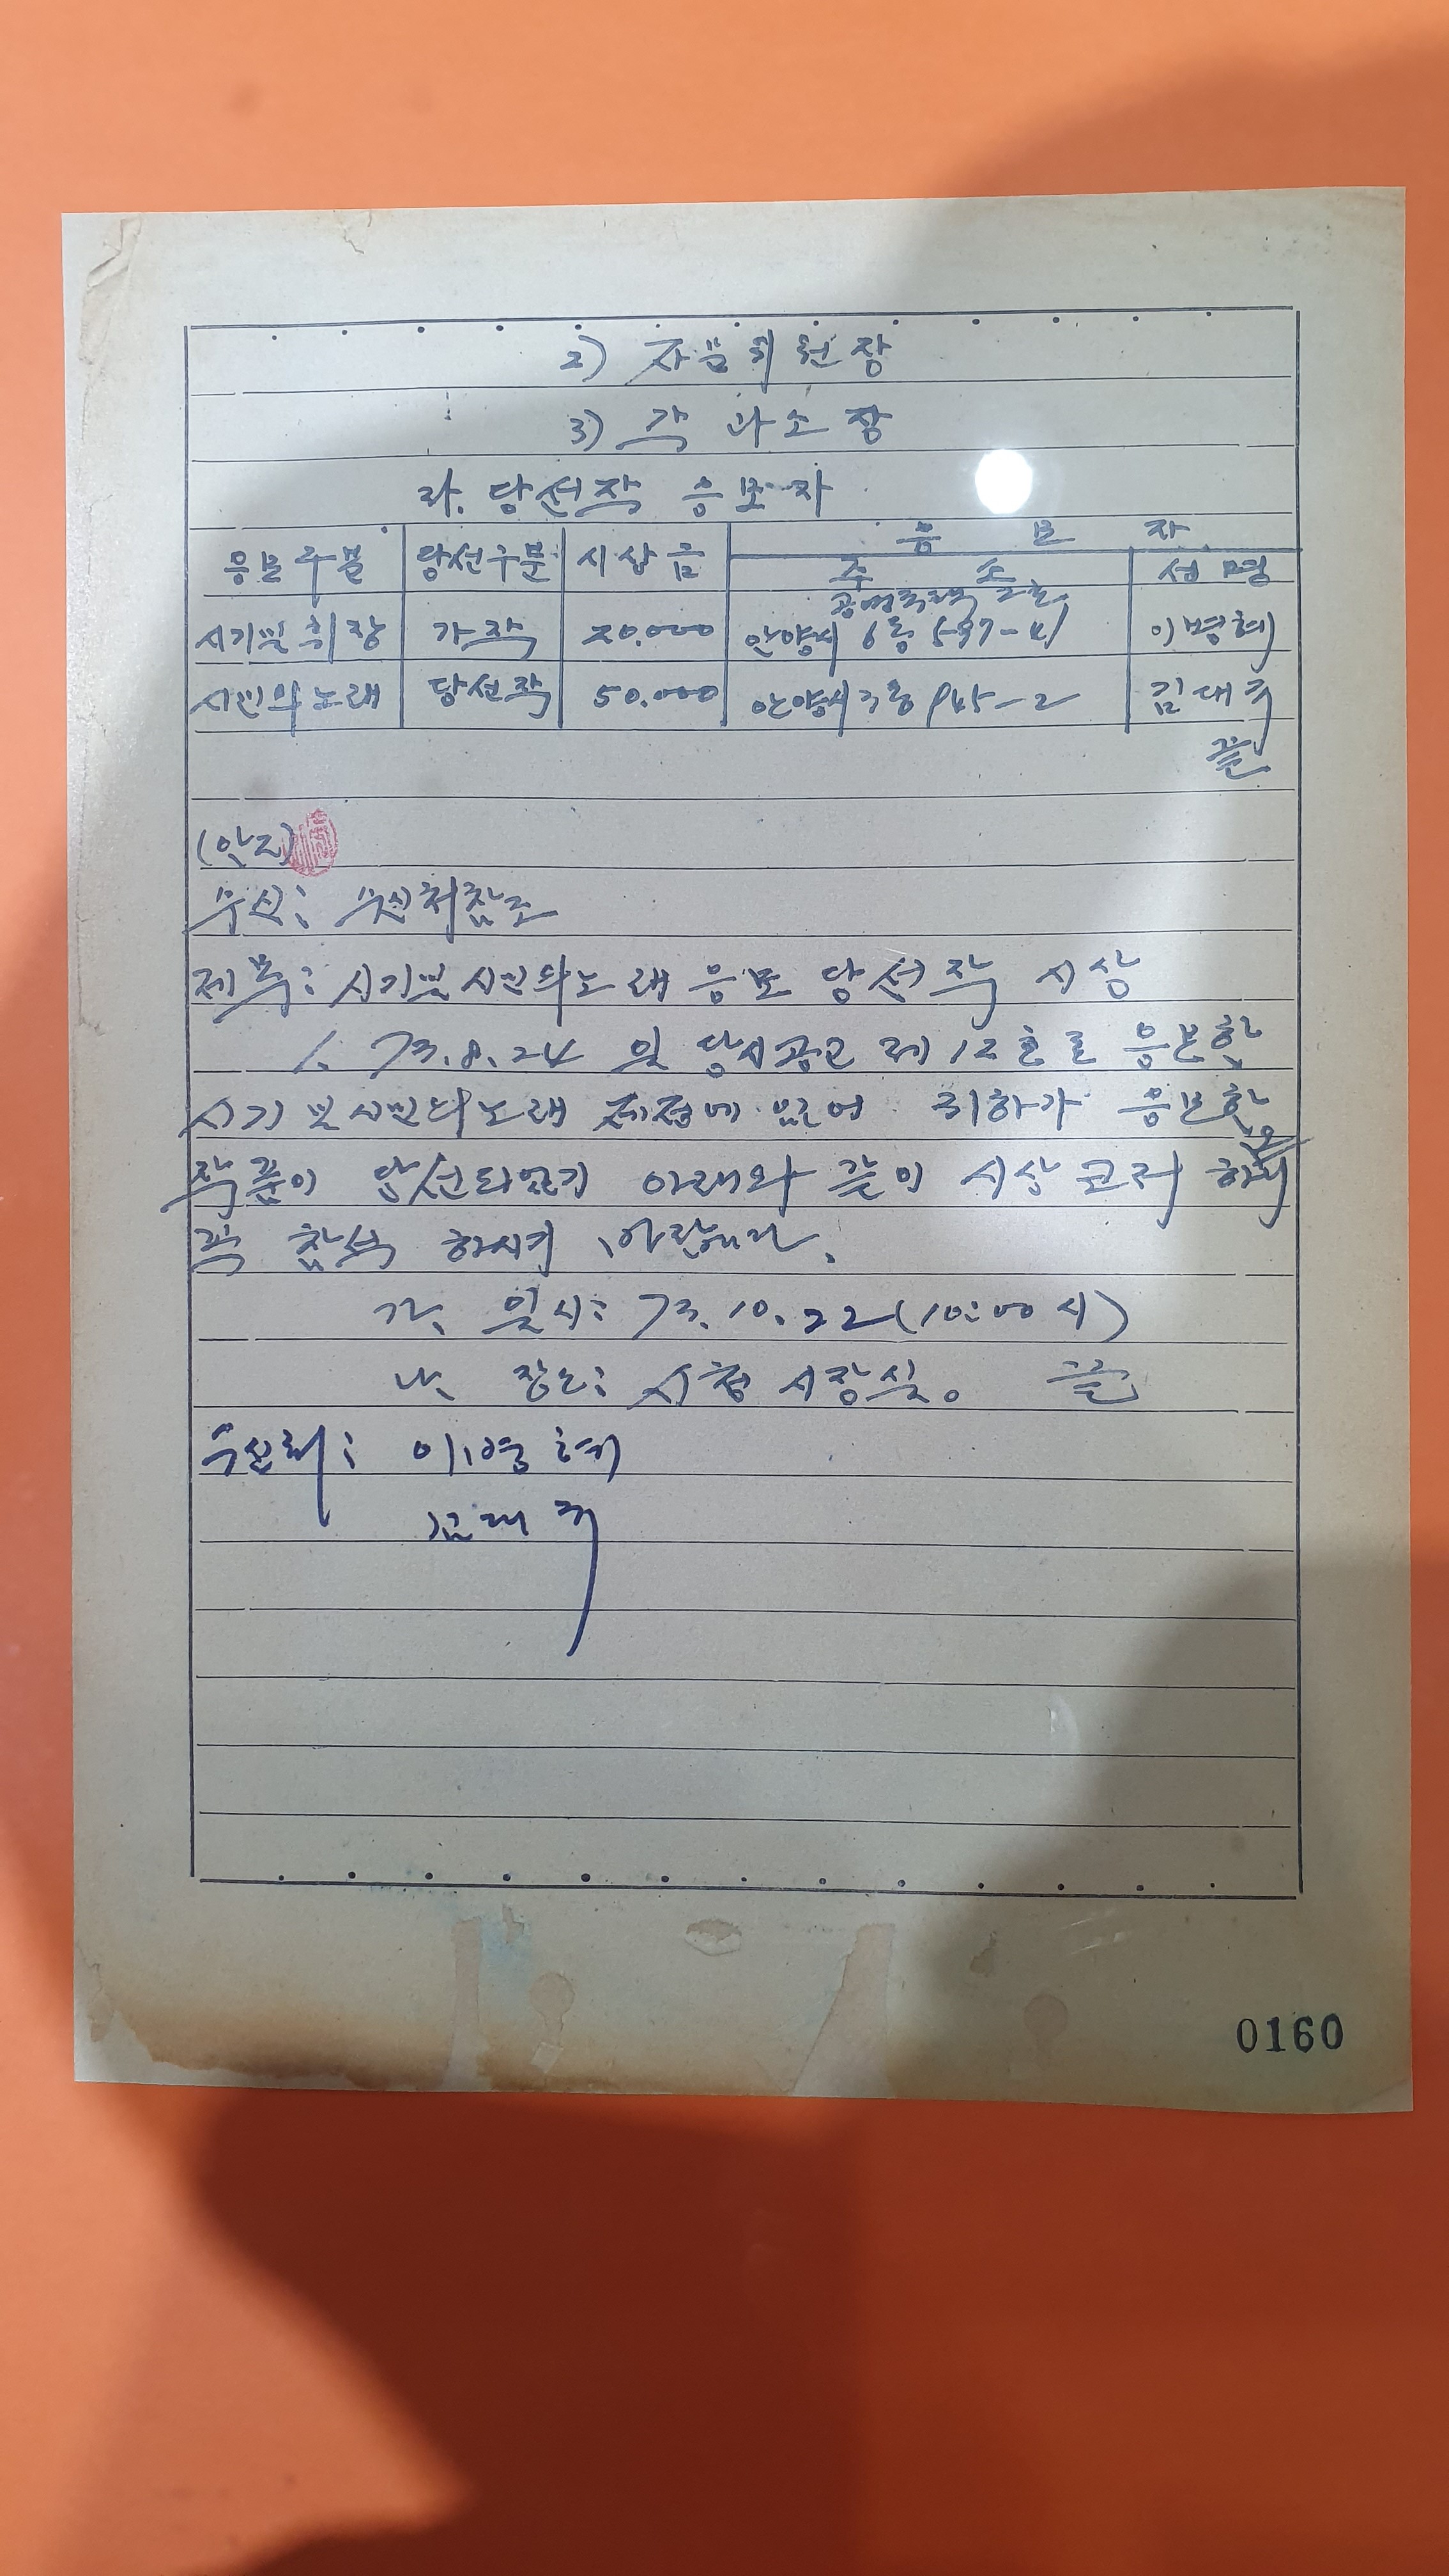 2) 자문위원장
3) 각 과소장
라. 당선작 응모자
응모자
응모구분 당선구분 시상금 주소 성명
공영주택
시기및휘장 가작 20.000 안양시 6동 597-41 이명혜
시민의노래 당선작 50.000 안양시 3동 945-2 김대규
끝
(안2)
수신: 수신처참조
제목: 시기및 시민의노래 응모 당선작 시상
1. 73.8.24 일 당시공고 제12호로 응모한
시기및 시민의노래 제정에 있어 귀하가 응모한
작품이 당선되었기 아래와 같이 시상코저 하오니
꼭 참석 하시기 바랍니다.
가. 일시: 73.10.22(10:00시)
나. 장소: 시청 시장실. 끝
수신처: 이명혜
김대규
0160